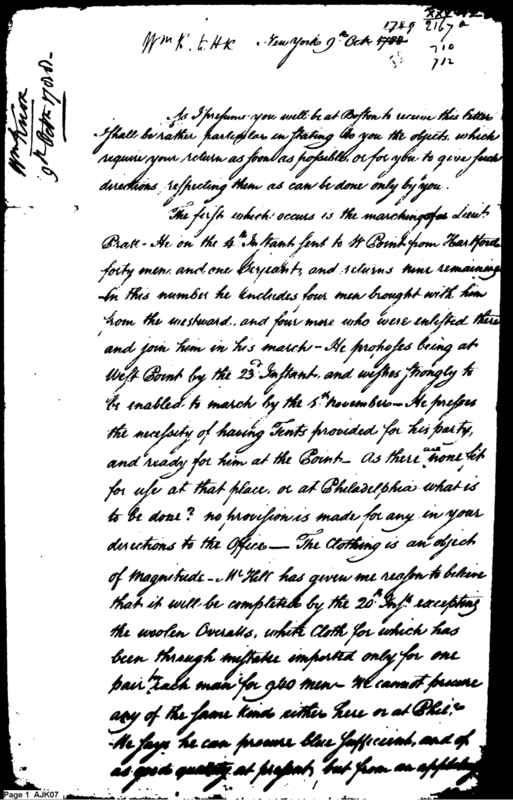 1789 2167a
Wm K. to HK New York 9th Oct 1788
710
712
Wm Knox
9th Octr 1788
As I presume you will be at Boston to receive this letter
I shall be rather particular in stating to you the objects, which
require your return as soon as possible, or for you to give such
directions respecting them as can be done only by you.
The first which occurs is the marching of Lieut
Pratt - He on the 4th Instant sent to W Point from Hartford
forty men, and one Serjeant, and returns nine remaining
In this number he includes four men brought with him
from the westward, and four more who were enlisted there
and join him in his march - He proposes being at
West Point by the 23d Instant, and wishes strongly to
be enabled to march by the 5th November - He presses
the necessity of having Tents provided for his party,
and ready for him at the Point - As there are none fit
for use at that place, or at Philadelphia what is
to be done? no provision is made for any in your
directions to the Office - The Clothing is an object
of Magnitude - Mr Hill has given me reason to believe
that it will be completed by the 20th Inst. excepting
the woolen Overalls, white Cloth for which has
been through mistake imported only for one
pair Each man for 940 men - We cannot procure
any of the same kind either here or at Phila
He says he can procure blue sufficient, and of
as good quality at present, but from an
Page 1 AJK07